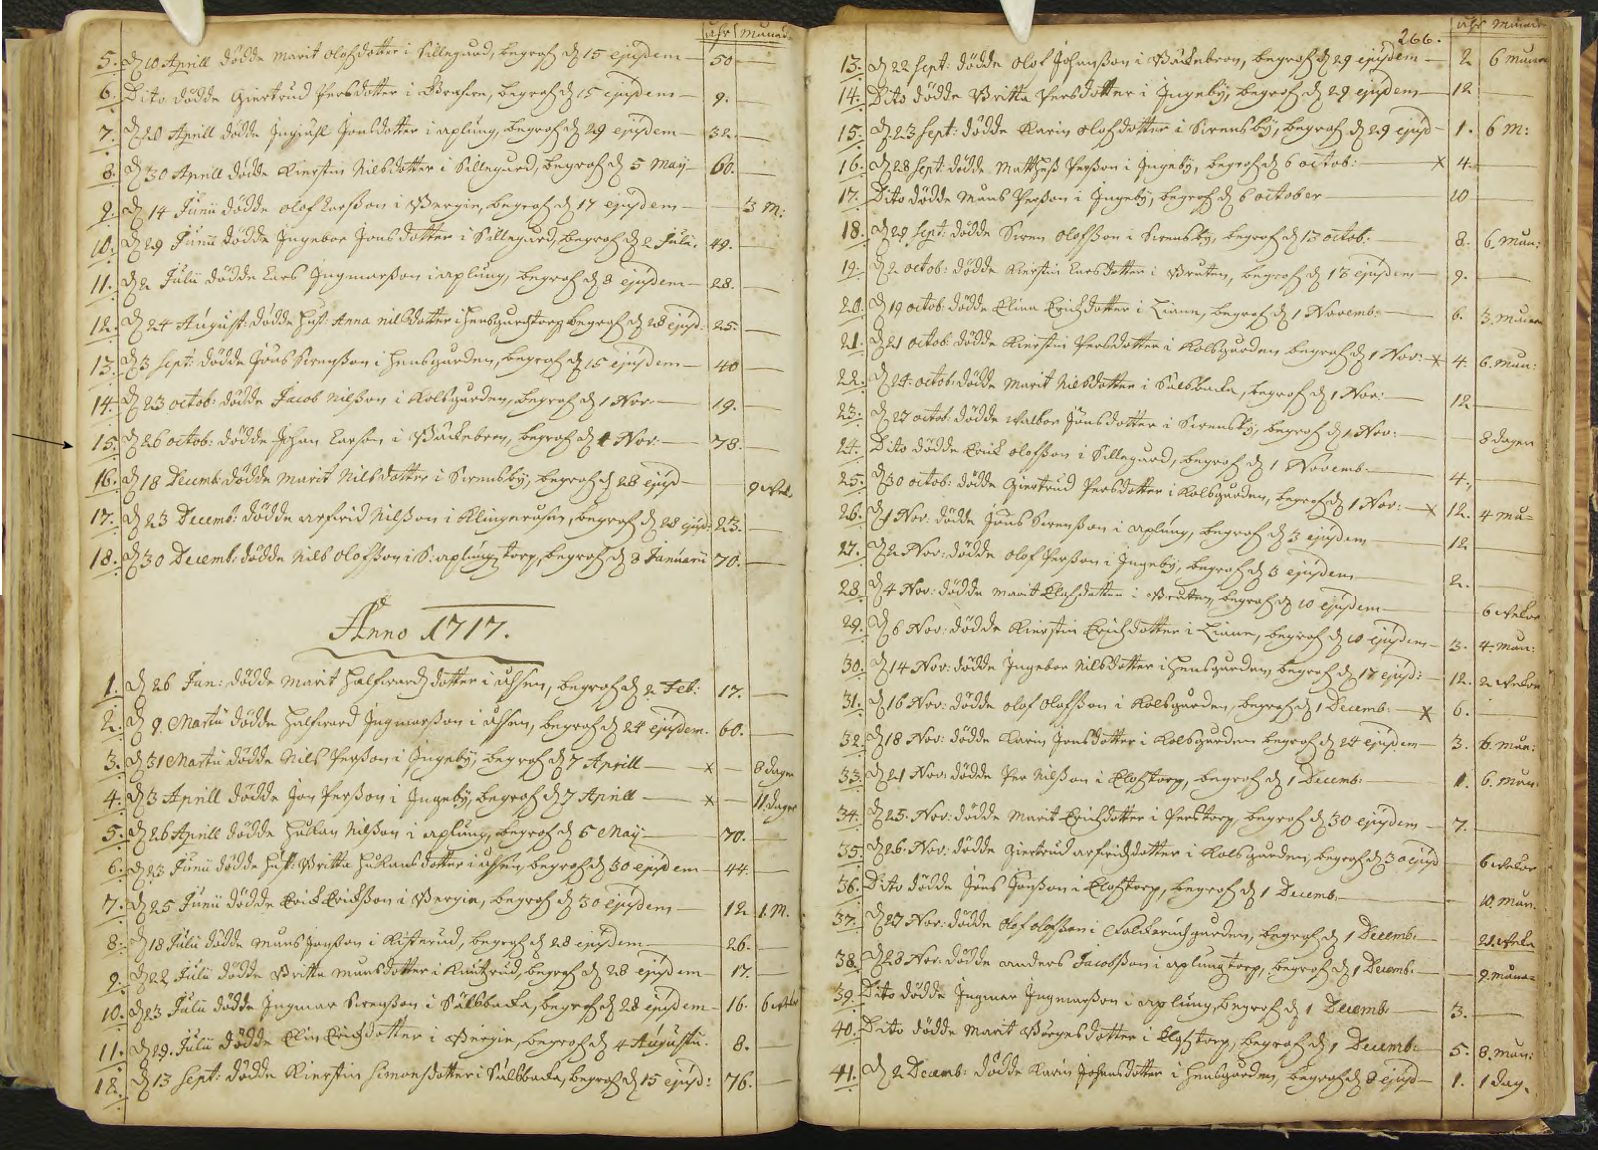 åhr Månad
5. D 10 Aprill dödde Marit Olofsdotter i Sillegård, begrof D 15 ejusdem — 50 —
6. Dito dödde Giertrud Persdotter i begrof D 15 ejusdem — 9. —
7. D 20 Aprill dödde Jonsdotter i aplung, begrof D 29 ejusdem — 32. —
8. D 30 Aprill dödde Kierstin Nilsdotter i Sillegård, begrof D 5 Maij — 60. —
9. D 14 Junii dödde Olof Larsson i Bergin, begrof D 17 ejusdem — 3 M:
10. D 29 Junii dödde Ingebor Jonsdotter i Sillegård, begrof D 2 Julii. 49. —
11. D 2 Julii dödde Lars Ingmarsson i aplung, begrof D 8 ejusdem — 28. —
12. D 24 August: dödde Hust: Anna Nilsdotter i begrof D 28 ejusd: 25. —
13. D 3 Sept: dödde Jöns Svensson i Hensgården, begrof D 15 ejusdem — 40 —
14. D 23 octob: dödde Jacob Nilsson i Kolsgården, begrof D 1 Nov: — 19. —
15. D 26 octob: dödde Johan Larson i Bäckebron, begrof D 4 Nov: — 78. —
16. D 18 Decemb: dödde Marit Nilsdotter i Svensby, begrof D 28 ejusd — 9 wek
17. D 23 Decemb: dödde Arfwid Nilsson i Klingerusen, begrof D 28 ejusd: 23. —
18. D 30 Decemb: dödde Nils Olofsson i S: aplungztorp, begrof D 8 Januarii 70. —
Anno 1717.
1. D 26 Jan: dödde Marit Halfwardzdotter i åhsen, begrof D 2 Feb: 17. —
2. D 9 Martii dödde Halfward Ingmarsson i åhsen, begrof D 24 ejusdem. 60. —
3. D 31 Martii dödde Nils Persson i Ingeby, begrof D 7 Aprill — x — 8 dagar
4. D 3 Aprill dödde Jon Persson i Ingeby, begrof D 7 Aprill — x — 11 dagar
5. D 26 Aprill dödde Håkan Nilsson i aplung, begrof D 5 Maij — 70. —
6. D 23 Junii dödde Hust: Britta Håkansdotter i åhsen, begrof D 30 ejusdem — 44. —
7. D 25 Junii dödde Erick Ericksson i Bergin, begrof D 30 ejusdem — 12 1. M.
8. D 18 Julii dödde Måns Jonsson i Risterud, begrof D 28 ejusdem — 26. —
9. D 22 Julii dödde Britta Månsdotter i begrof D 28 ejusdem — 17. —
10. D 23 Julii dödde Ingmar Svensson i Sålsbacka, begrof D 28 ejusdem — 16. 6 wekor
11. D 29. Julii dödde Elin Ericksdotter i Bergin, begrof D 4 Augusti. 8. —
12. D 13 Sept: dödde Kierstin Simonsdotter i Sålsbacka, begrof D 15 ejusd: 76. —
266. åhr Månad
13. D 22 Sept: dödde Olof Johansson i Bäckebron, begrof D 29 ejusdem — 2 6 Månad
14. Dito dödde Britta Persdotter i Ingeby, begrof D 29 ejusdem — 12 —
15. D 23 Sept: dödde Karin Olofsdotter i Svensby, begrof D 29 ejusd — 1. 6 M:
16. D 28 Sept: dödde Matthes Persson i Ingeby, begrof D 6 octob: — x 4. —
17. Dito dödde Måns Persson i Ingeby, begrof D 6 october — 10 —
18. D 29 Sept: dödde Sven Olofsson i Svensby, begrof D 13 octob: — 8. 6. Mån:
19. D 2 octob: dödde Kierstin Larsdotter i Bråten, begrof D 18 ejusdem — 9. —
20. D 19 octob: dödde Elina Ericksdotter i Liane, begrof D 1 Novemb: — 6. 3. Månad
21. D 21 octob: dödde Kierstin Persdotter i Kolsgården begrof D 1 Nov: — x 4. 6. Mån:
22. D 24 octob: dödde Marit Nilsdotter i Sålsbacka, begrof D 1 Nov: — 12 —
23. D 27 octob: dödde Walbor Jönsdotter i Svensby, begrof D 1 Nov: — 8 dagar
24. Dito dödde Erick Olofsson i Sillegård, begrof D 1 Novemb — 4. —
25. D 30 octob: dödde Giertrud Persdotter i Kolsgården, begrof D 1 Nov: — x 12. 4 Må=
26. D 1 Nov: dödde Jöns Svensson i aplung, begrof D 3 ejusdem — 12 —
27. D 2 Nov: dödde Olof Persson i Ingeby, begrof D 3 ejusdem — 2. —
28. D 4 Nov: dödde Marit Elofsdotter i Bråten, begrof D 10 ejusdem — 6 wekor
29. D 6 Nov: dödde Kierstin Ericksdotter i Liane, begrof D 10 ejusdem — 3. 4. Mån:
30. D 14 Nov: dödde Ingebor Nilsdotter i Hensgården, begrof D 17 ejusd: — 12. 2 wekor
31. D 16 Nov: dödde Olof Olofsson i Kolsgården, begrof D 1 Decemb: — x 6. —
32. D 18 Nov: dödde Karin Jonsdotter i Kolsgården begrof D 24 ejusdem — 3. 6. Mån:
33. D 21 Nov: dödde Per Nilsson i Elofztorp, begrof D 1 Decemb: — 1. 6. Mån:
34. D 25. Nov: dödde Marit Ericksdotter i Perstorp, begrof D 30 ejusdem — 7. —
35. D 26. Nov: dödde Giertrud Arfwidzdotter i Kolsgården, begrof D 30 ejusd — 6 wekor
36. Dito dödde Jöns Jonsson i Elofztorp, begrof D 1 Decemb. — 10. Mån.
37. D 27 Nov: dödde Olof Olofsson i begrof D 1 Decemb: — 21. weka
38. D 28 Nov: dödde Anders Jacobsson i aplungztorp, begrof D 1 Decemb: — 9. Måna=
39. Dito dödde Ingmar Ingmarsson i aplung, begrof D 1 Decemb: — 3. —
40. Dito dödde Marit Börgesdotter i Elofztorp, begrof D 1 Decemb: — 5. 8. Mån:
41. D 2 Decemb: dödde Karin Johansdotter i Hensgården, begrof D 8 ejusd — 1. 1 dag.